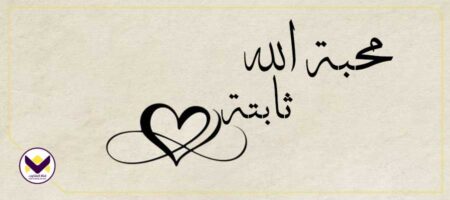 محبة الله
ثابتة